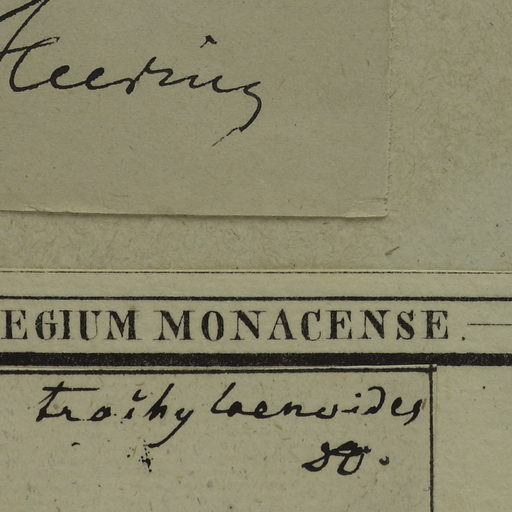 Heering
EGIUM MONACENSE.
trachylaenoides
DC.